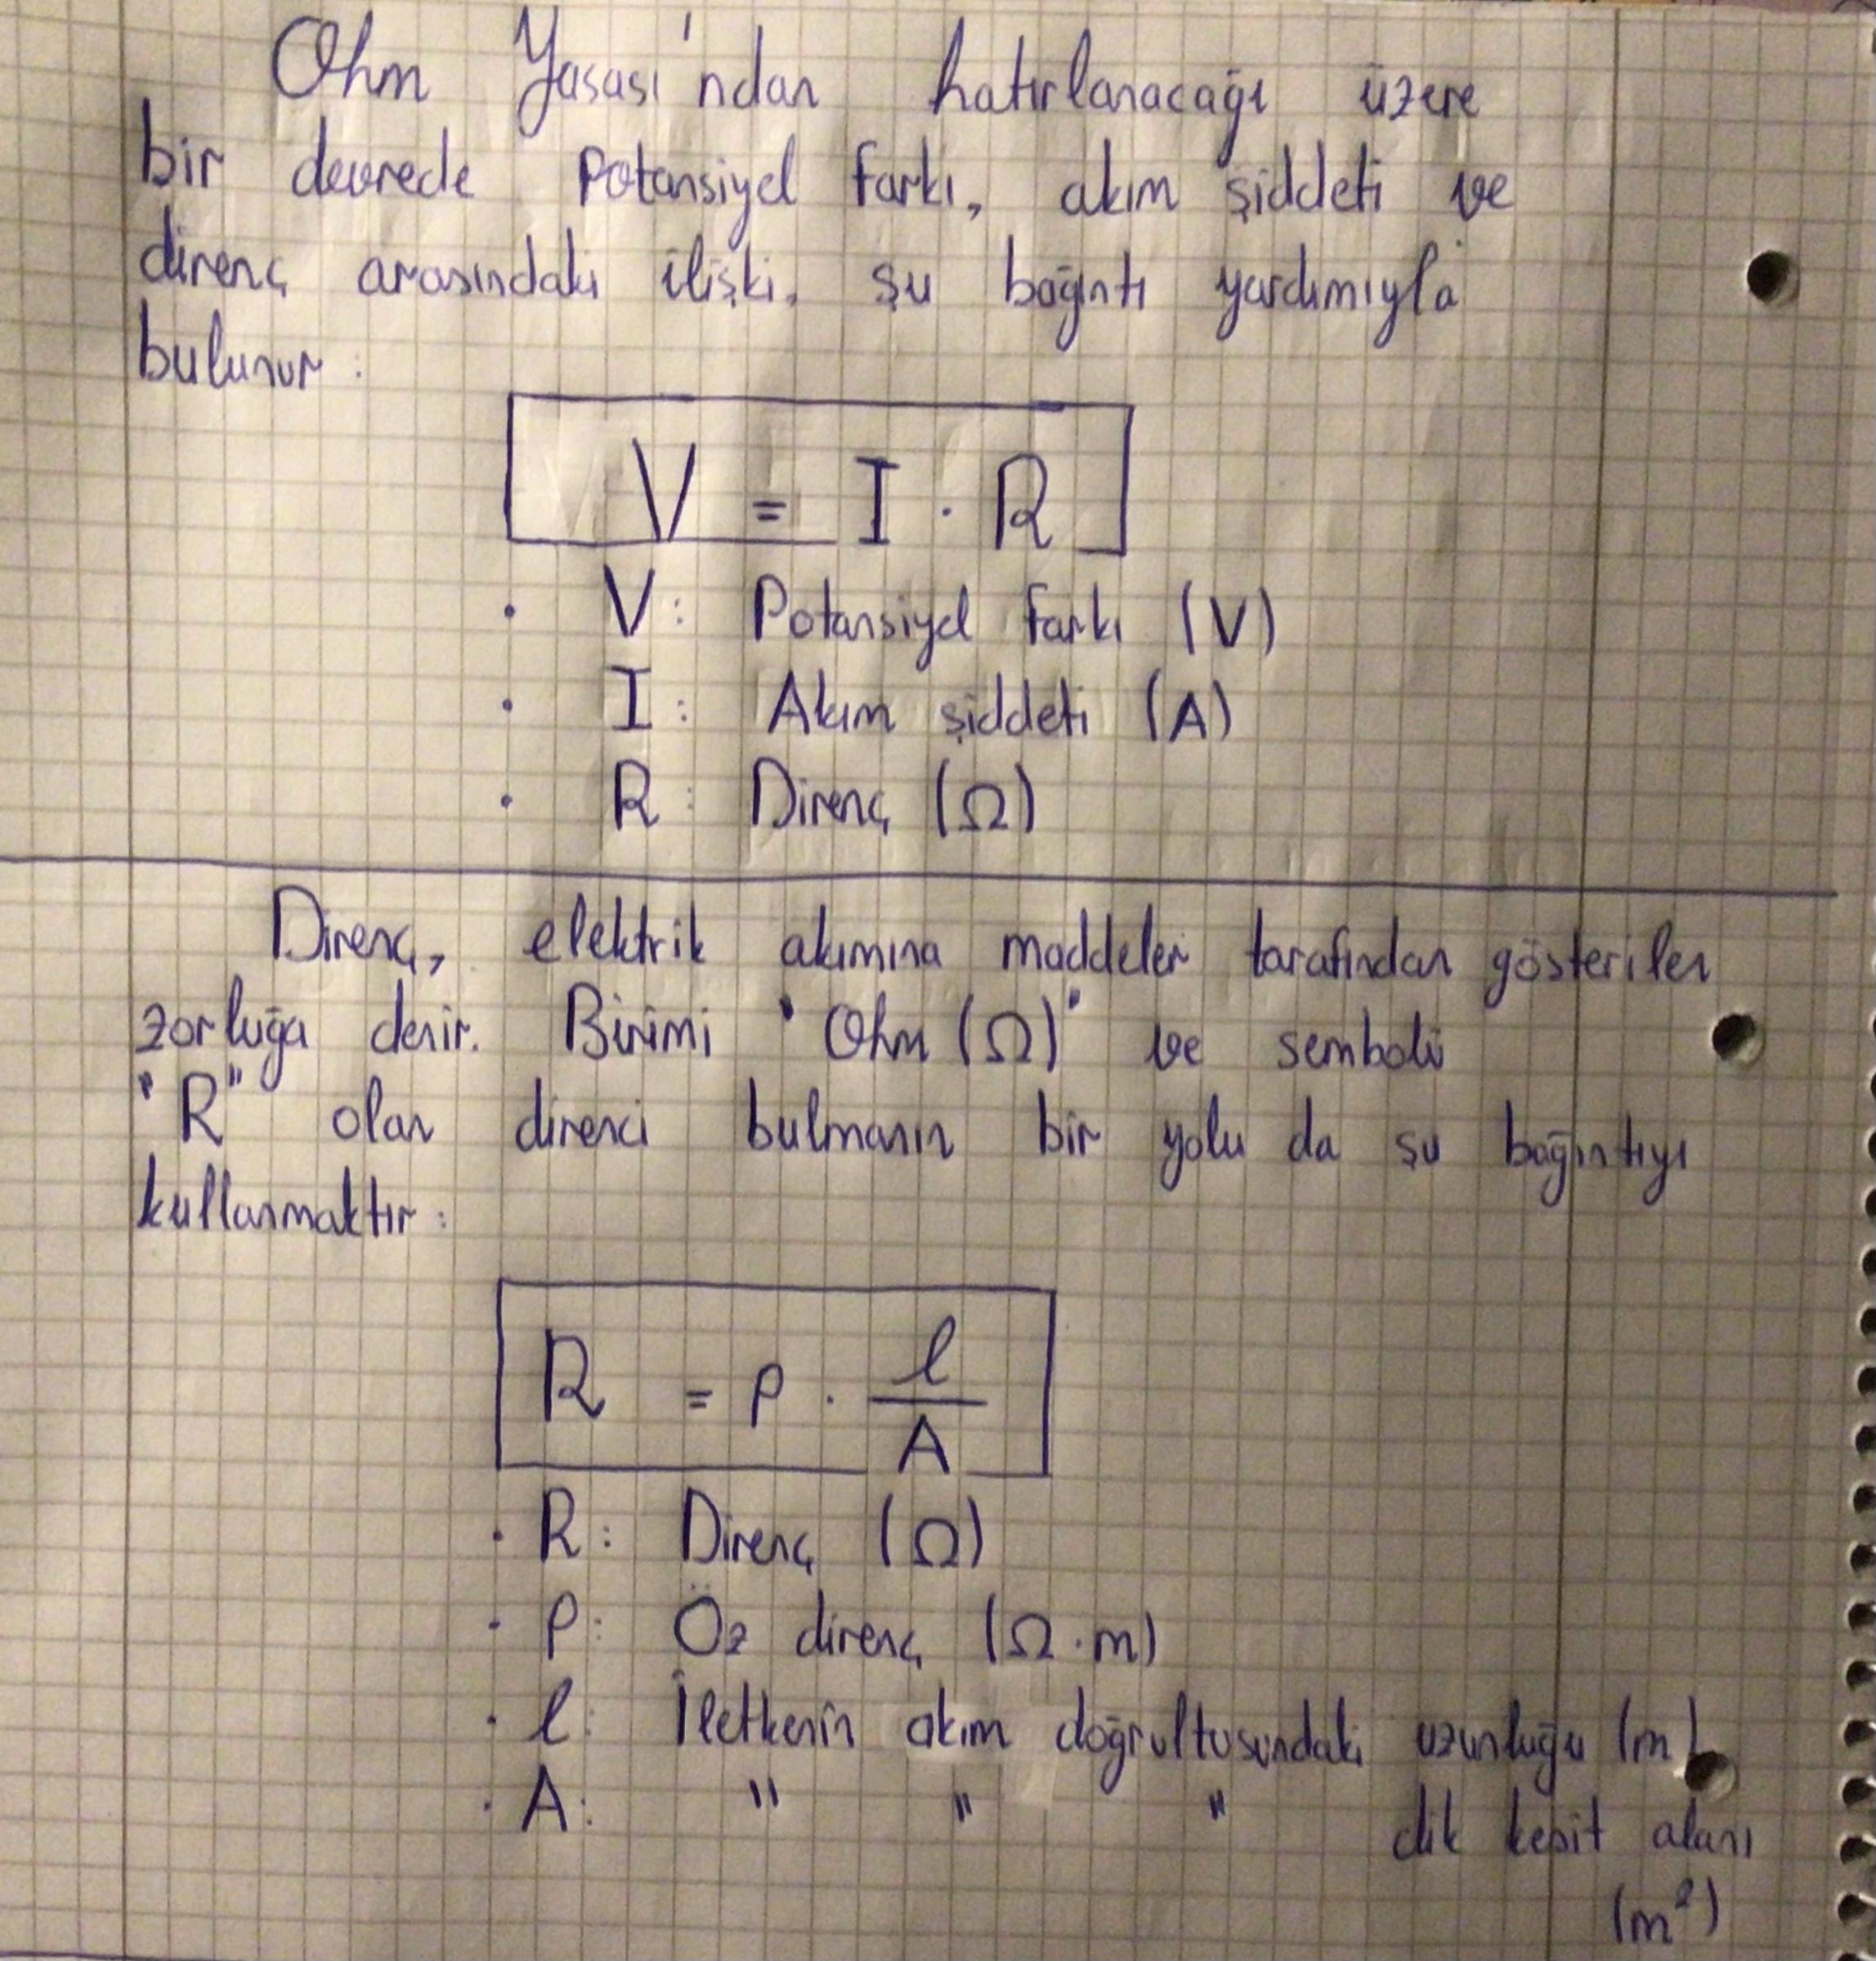 Ohm Yasası'ndan hatırlanacağı üzere
bir devrede potansiyel farkı, akım şiddeti ve
direnç arasındaki ilişki, şu bağıntı yardımıyla
bulunur:
V = I · R
· V: Potansiyel farkı (V)
· I: Akım şiddeti (A)
· R: Direnç (Ω)
Direnç, elektrik akımına maddeler tarafından gösterilen
zorluğa denir. Birimi "Ohm (Ω)" ve sembolü
"R" olan direnci bulmanın bir yolu da şu bağıntıyı
kullanmaktır:
R = ρ · l/A
· R: Direnç (Ω)
· ρ: Öz direnç (Ω·m)
· l: İletkenin akım doğrultusundaki uzunluğu (m)
· A: " " " dik kesit alanı
(m²)